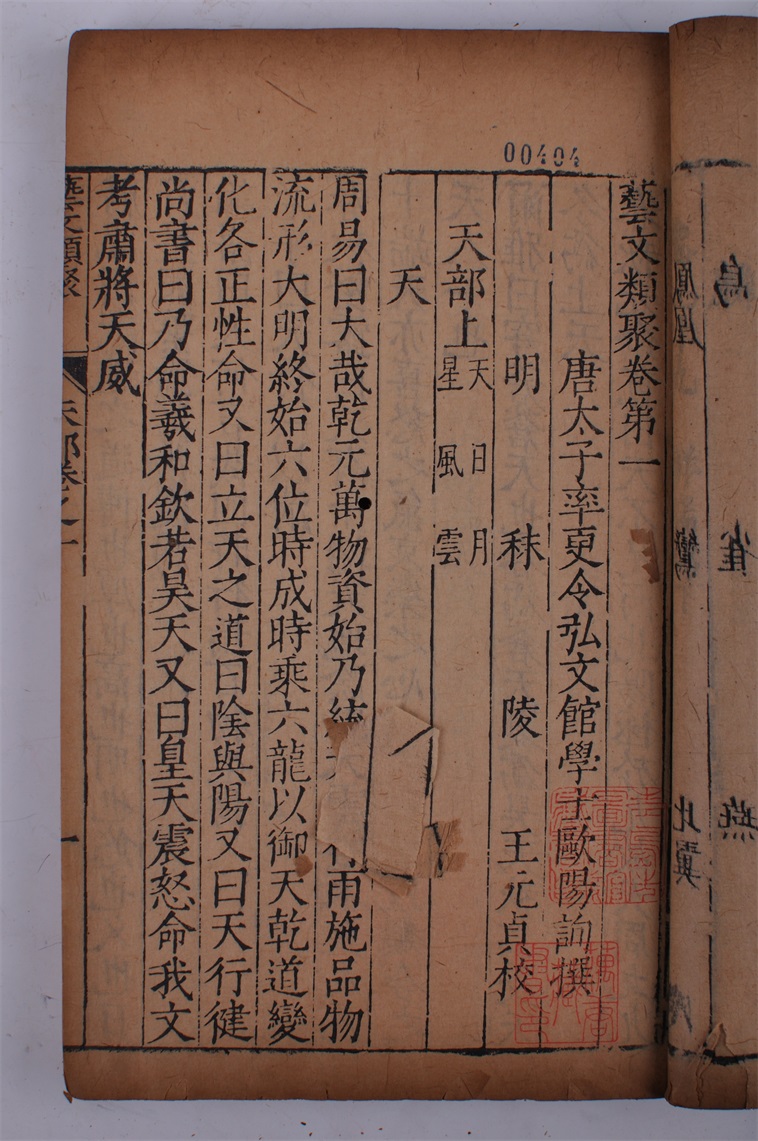 00404
藝文類聚卷第一
唐太子率更令弘文館學士歐陽詢撰
明 秣 陵 王元貞校
天部上 天 日 月
星 風 雲
天
周易曰大哉乾元萬物資始乃統天 雨施品物
流形大明終始六位時成時乘六龍以御天乾道變
化各正性命又曰立天之道曰陰與陽又曰天行健
尚書曰乃命羲和欽若昊天又曰皇天震怒命我文
考肅將天威
藝文類聚 天部卷之一 一
鳥 雀 燕
鳳凰 鸞 比翼